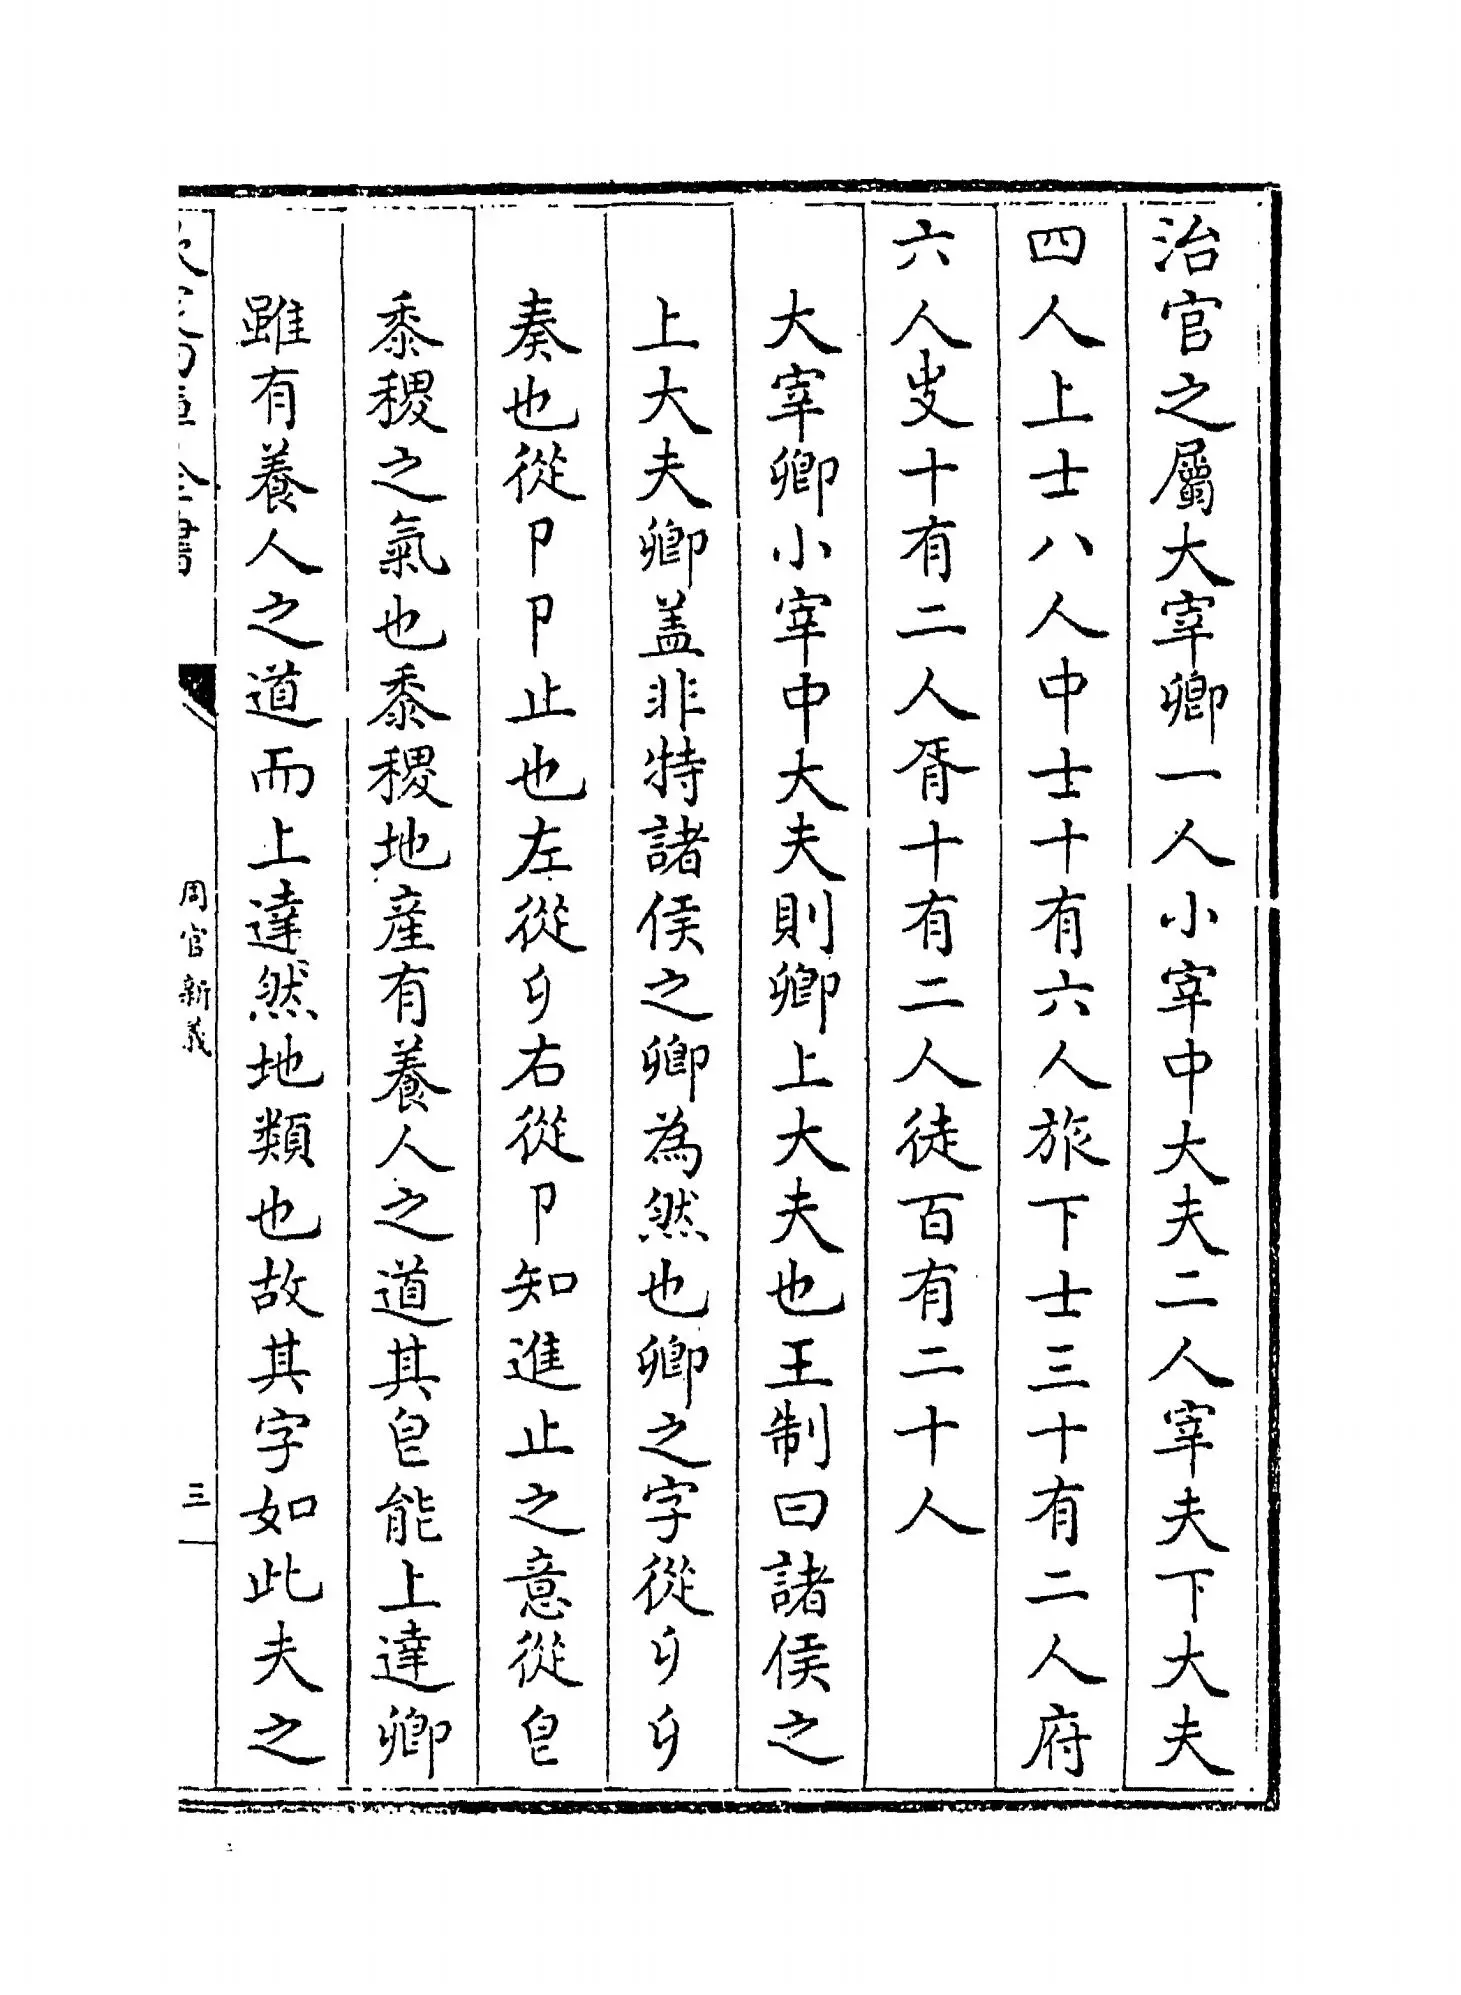 治官之屬大宰卿一人小宰中大夫二人宰夫下大夫
四人上士八人中士十有六人旅下士三十有二人府
六人史十有二人胥十有二人徒百有二十人
大宰卿小宰中大夫則卿上大夫也王制曰諸侯之
上大夫卿盖非特諸侯之卿為然也卿之字從𠂎𠂎
奏也從卩卩止也左從𠂎右從卩知進止之意從皀
黍稷之氣也黍稷地產有養人之道其皀能上達卿
雖有養人之道而上達然地類也故其字如此夫之
欽定四庫全書
周官新義
三